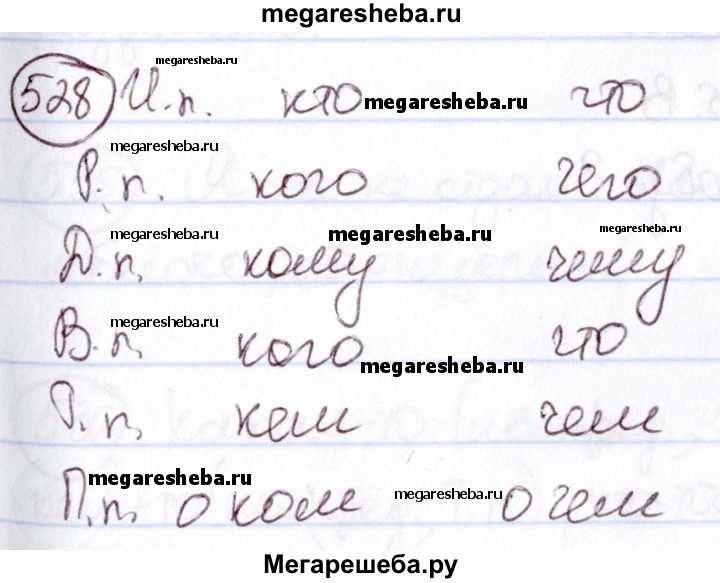 megaresheba.ru
megaresheba.ru
528 И.п. кто megaresheba.ru что
megaresheba.ru
Р.п. кого чего
megaresheba.ru megaresheba.ru megaresheba.ru
Д.п. кому чему
megaresheba.ru
В.п. кого megaresheba.ru что
Т.п. кем чем
megaresheba.ru megaresheba.ru
П.п. о ком о чем
Мегарешеба.ру